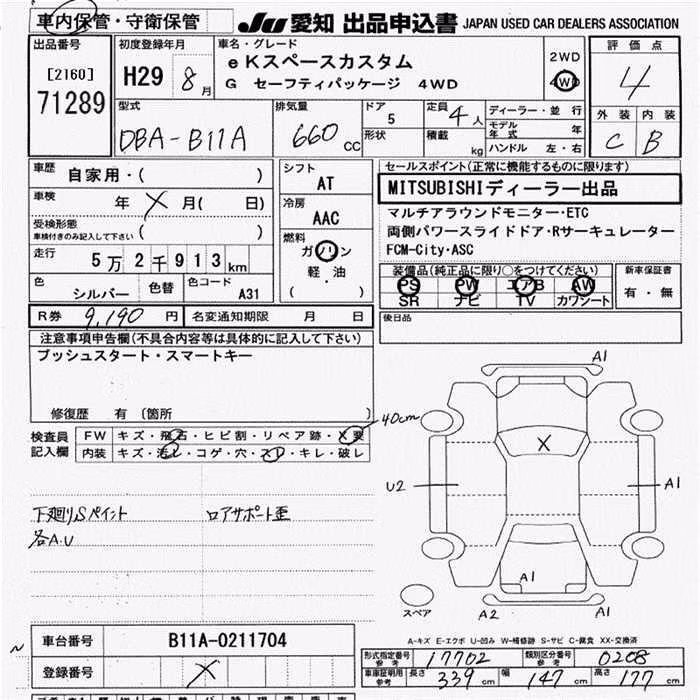 車内保管・守衛保管
JU 愛知 出品申込書 JAPAN USED CAR DEALERS ASSOCIATION
出品番号
[2160]
71289
初度登録年月
H29 8月
車名・グレード
eKスペースカスタム
G セーフティパッケージ 4WD
2WD
4WD
評価点
4
外装 内装
C B
型式
DBA-B11A
排気量
660 CC
ドア
5
形状
定員
4人
積載
kg
ディーラー・並行
モデル年式 年
ハンドル 左・右
車歴 自家用・( )
車検 年 X 月( 日)
受検形態
車検付きのみ記入して下さい ( )
走行 5万2千913km
色 シルバー
色替
色コード A31
シフト
AT
冷房
AAC
燃料
ガソリン
軽・油
( )
セールスポイント(正常に機能するものに限ります)
MITSUBISHIディーラー出品
マルチアラウンドモニター・ETC
両側パワースライドドア・Rサーキュレーター
FCM-City・ASC
装備品(純正品に限り○をつけてください)
PS PW エアB AW
SR ナビ TV カワシート
新車保証書
有・無
R券 9,190 円
名変通知期限 月 日
後日品
注意事項申告欄(不具合内容等は具体的に記入して下さい)
プッシュスタート・スマートキー
修復歴 有 〔箇所 〕
検査員記入欄
FW キズ・飛石・ヒビ割・リペア跡・X要
40cm
内装 キズ・汚レ・コゲ・穴・スレ・キレ・破レ
下廻りSペイント ロアサポート歪
各A.U
A1
X
U2
A1
A1
A2
A1
スペア
A-キズ E-エクボ U-凹み W-補修跡 S-サビ C-腐食 XX-交換済
車台番号 B11A-0211704
登録番号 X
形式指定番号 参考 17702
類別区分番号 参考 0208
車庫証明用 参考 長さ 339 cm 幅 147 cm 高さ 177 cm